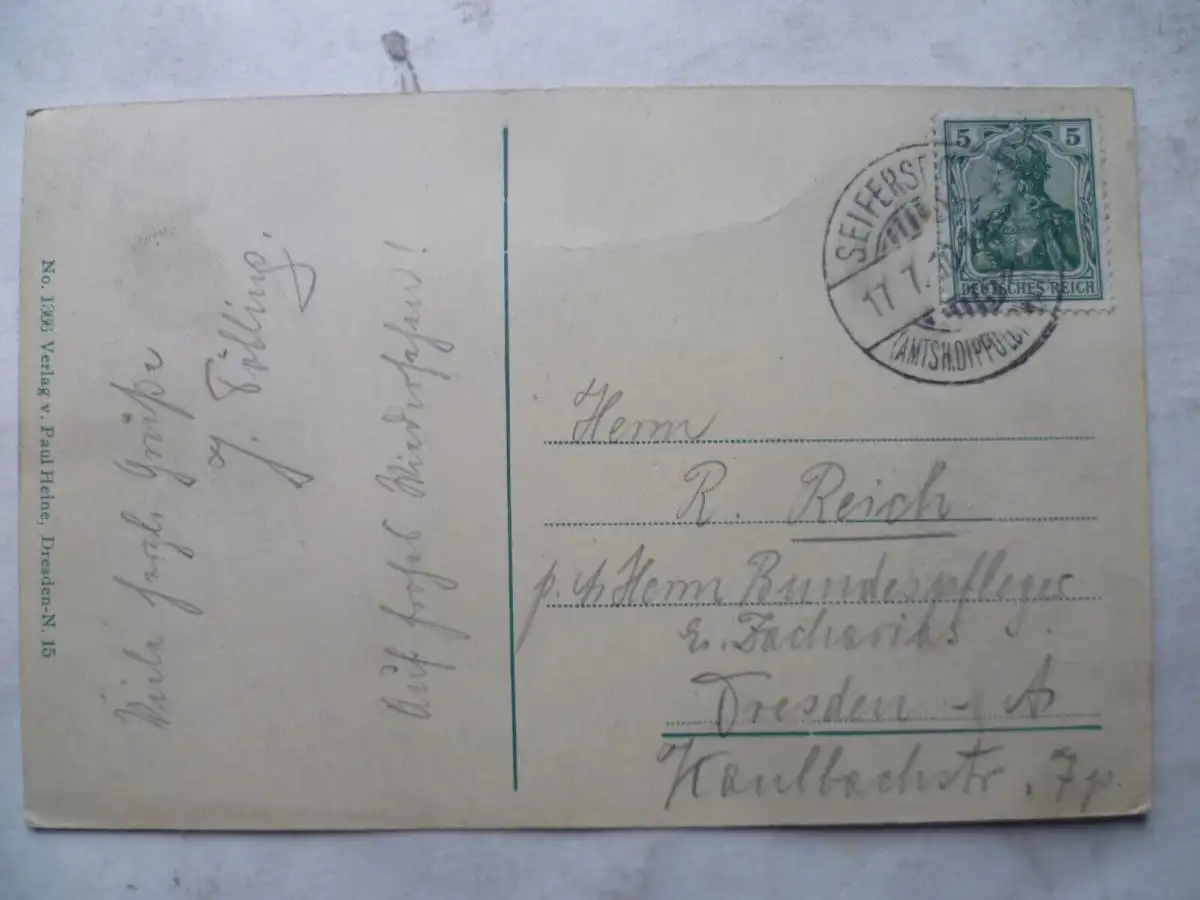 No. 1396 Verlag v. Paul Heine, Dresden-N. 15
Viele herzl. Grüße
J. Döbling.
Auf frohes Wiedersehen!
5 5
DEUTSCHES REICH
SEIFERSD
17 7.
(AMTSH. DIPPOLDI
Herrn
R. Reich
p. A. Herrn Bundespfleger
E. Zacharias
Dresden - A
Kaulbachstr. 7 p.